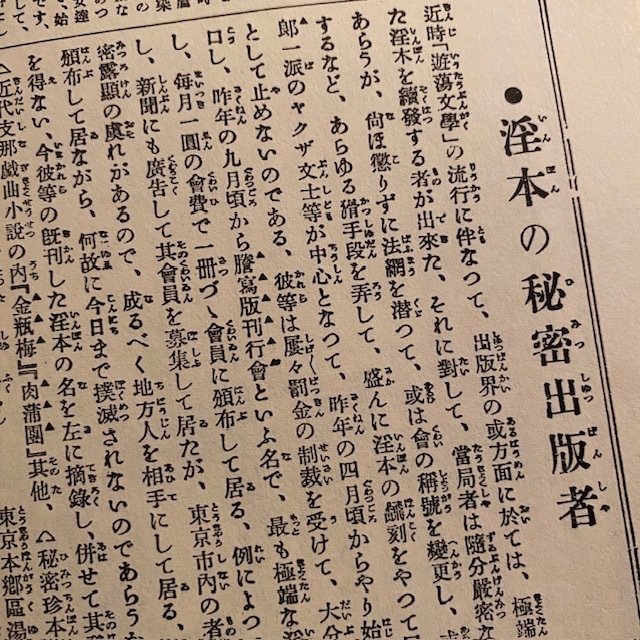 ●淫本の秘密出版者
近時「遊蕩文學」の流行に伴なつて、出版界の或方面に於ては、極端
た淫本を續發する者が出來た、それに對して、當局者は隨分嚴密な
あらうが、尙ほ懲りずに法網を潜つて、或は會の稱號を變更し、
するなど、あらゆる滑手段を弄して、盛んに淫本の飜刻をやつて居
郎一派のヤクザ文士等が中心となつて、昨年の四月頃からやり始
として止めないのである、彼等は屢々罰金の制裁を受けて、大分
口し、昨年の九月頃から謄寫版刊行會といふ名で、最も極端な淫
し、毎月一圓の會費で一冊づゝ會員に頒布して居る、例によつ
し、新聞にも廣告して其會員を募集して居たが、東京市内の者
密露顯の虞れがあるので、成るべく地方人を相手にして居る、
頒布して居ながら、何故に今日まで撲滅されないのであらう
を得ない、今彼等の旣刊した淫本の名を左に摘錄し、併せて其
△近代支那戲曲小說の内『金瓶梅』『肉蒲團』其他、 △秘密珍本
東京本鄕區湯